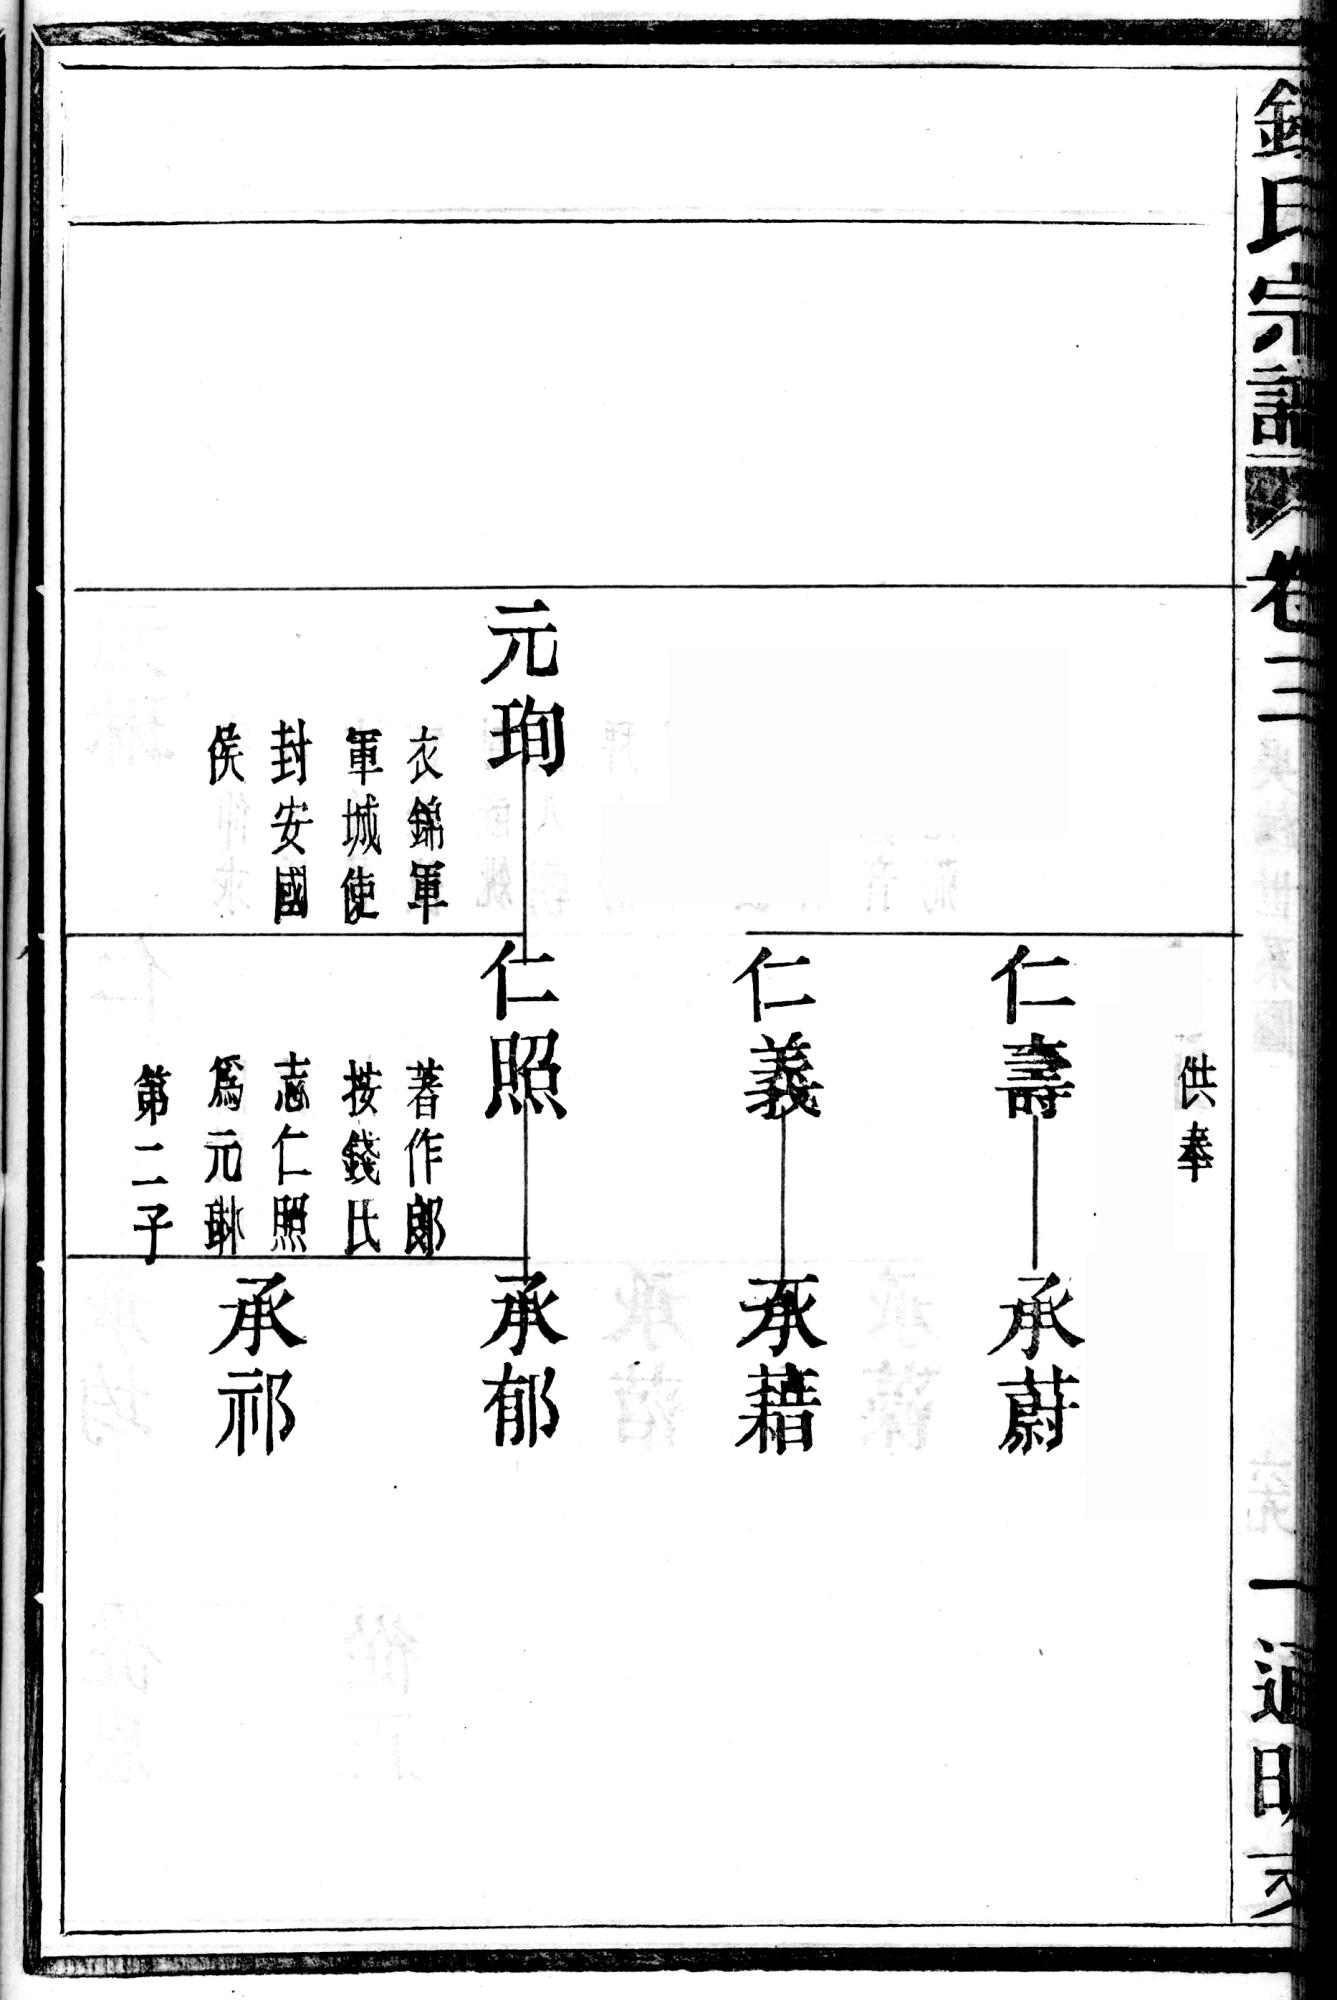 錢氏宗譜
卷三
一
通明支
供奉
仁壽
承蔚
仁義
承藉
元珣
衣錦軍
軍城使
封安國
侯
仁照
著作郎
按錢氏
志仁照
爲元琳
第二子
承郁
承祁